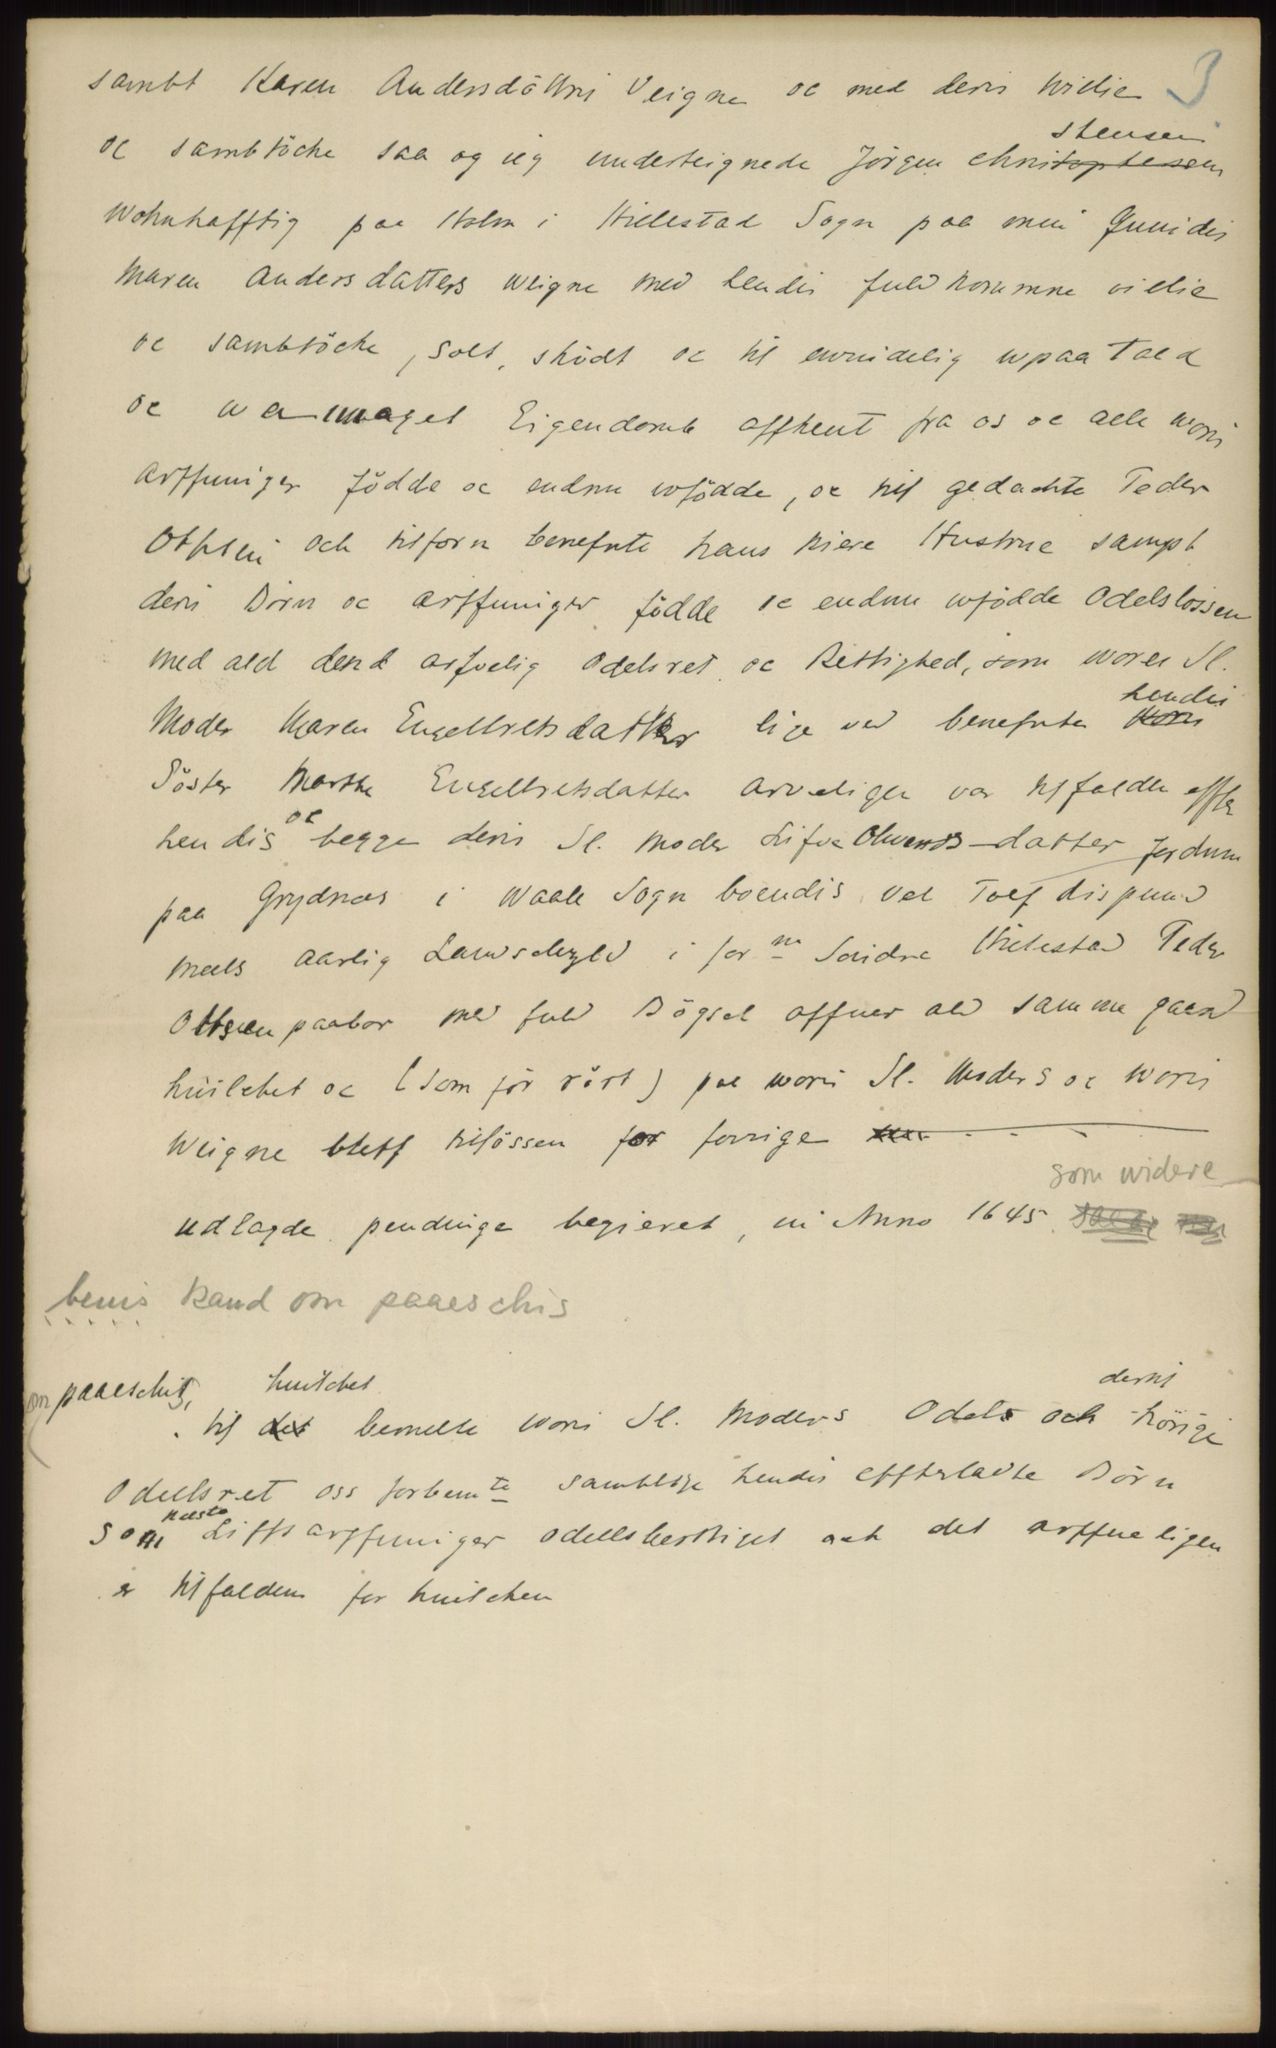 3
sambt Karen Andersdöttris Veigne oc med deris willie
stensen
oc sambtöcke saa og ieg underteignede Jörgen Christophersen
wohnhafftig paa Holm i Hillestad Sogn paa min Quindis
Maren Andersdatters weigne med hendis fuldkommne villie
oc sambtöcke, solt, skiödt oc til ewindelig wpaatald
oc wanmaget Eigendomb affhent fra os oc alle woris
arffuinger födde oc endnu wfödde, oc til gedachte Peder
Ottsen och tilforn benefnte hans kiere Hustrue sampt
deris Börn oc arffuinger födde oc endnu wfödde Odelslössen
med ald dend arfvelig Odelsret oc Rettighed, som wores Sl.
hendis
Moder Maren Engelbretsdatter lige ved benefnte
Söster Marthe Engelbretsdatter arveligen var tilfalden effter
oc
hendis begge deris Sl. Moder Lifve Olwersdatter fordum
paa Grydnæs i Waale Sogn boendis, vel Tolf Lispund
meels aarlig Landschyld i forne Söndre Hillestad Peder
Ottsen paabor med fuld Bögsel offuer ald samme gaard
huilchet oc (som för rört) paa woris Sl. Moders oc woris
Weigne bleff tilössen for forrige
som widere
udlagde pendinge begieret, in Anno 1645
bevis kand om paaeschis
om paaeschis, huilchet dertil
til det bemelte woris Sl. Moders Odels och hörige
Odellsret oss forbemte samtlige hendis effterladte Börn
næste
som Liffsarffuinger odellsberettiget och det arffueligen
er tilfalden for huilchen